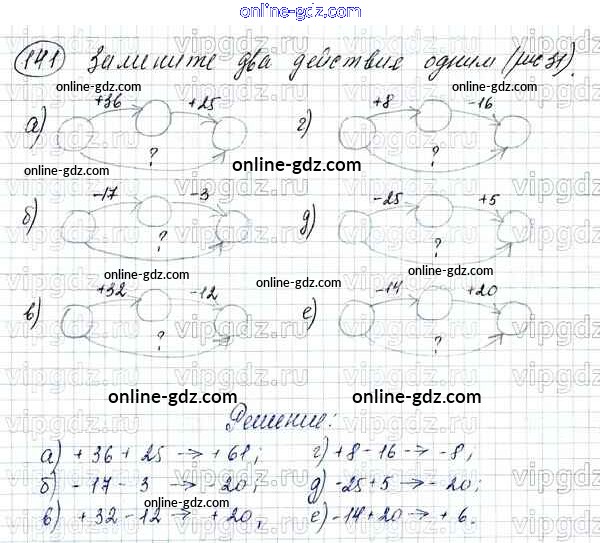 online-gdz.com
141 Замените два действия одним (рис 31).
online-gdz.com online-gdz.com
а) +36 +25 ? г) +8 -16 ?
online-gdz.com online-gdz.com online-gdz.com
б) -17 -3 ? д) -25 +5 ?
online-gdz.com online-gdz.com
в) +32 -12 ? е) -14 +20 ?
online-gdz.com online-gdz.com
Решение:
а) +36+25→+61; г) +8-16→-8;
б) -17-3 → -20; д) -25+5→-20;
online-gdz.com
в) +32-12→ +20, е) -14+20→+6.
online-gdz.com
vipgdz.ru